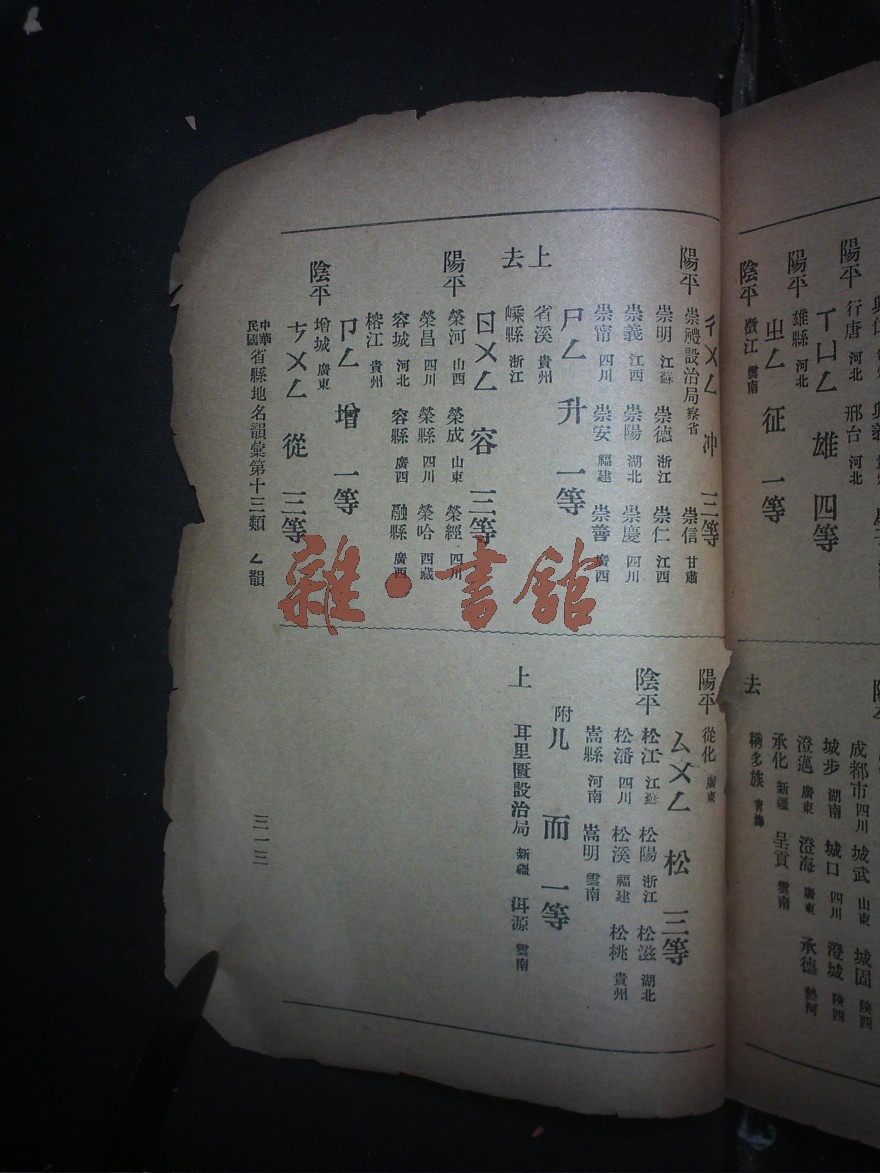 陽平 行唐 河北 邢台 河北
ㄒㄩㄥ 雄 四等
陽平 雄縣 河北
ㄓㄥ 征 一等
陰平 澂江 雲南
成都市 四川 城武 山東 城固 陝西
城步 湖南 城口 四川 澄城 陝西
澄邁 廣東 澄海 廣東 承德 熱河
承化 新疆 呈貢 雲南
去 稱多族 青海
ㄔㄨㄥ 冲 三等
陽平 崇禮設治局 察省 崇信 甘肅
崇明 江蘇 崇德 浙江 崇仁 江西
崇義 江西 崇陽 湖北 崇慶 四川
崇甯 四川 崇安 福建 崇善 廣西
ㄕㄥ 升 一等
上 省溪 貴州
去 嵊縣 浙江
ㄖㄨㄥ 容 三等
陽平 榮河 山西 榮成 山東 榮經 四川
榮昌 四川 榮縣 四川 榮哈 西藏
容城 河北 容縣 廣西 融縣 廣西
榕江 貴州
ㄗㄥ 增 一等
陰平 增城 廣東
ㄘㄨㄥ 從 三等
陽平 從化 廣東
ㄙㄨㄥ 松 三等
陰平 松江 江蘇 松陽 浙江 松滋 湖北
松潘 四川 松溪 福建 松桃 貴州
嵩縣 河南 嵩明 雲南
附ㄦ 而 一等
上 耳里匱設治局 新疆 洱源 雲南
中華民國省縣地名韻彙第十三類 ㄥ韻
三一三
雜·書館